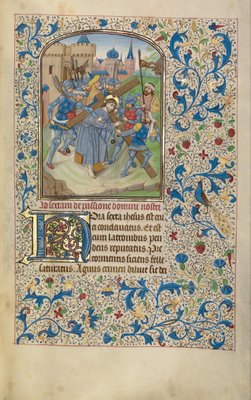 Ad sextam de passione domini nostri
Hora sexta ihesus est cru
ci conclavatus. Et est
cum latronibus pen
dens reputatus. Pre
tormentis siciens felle
saturatus. Agnus crimen diluit sic de